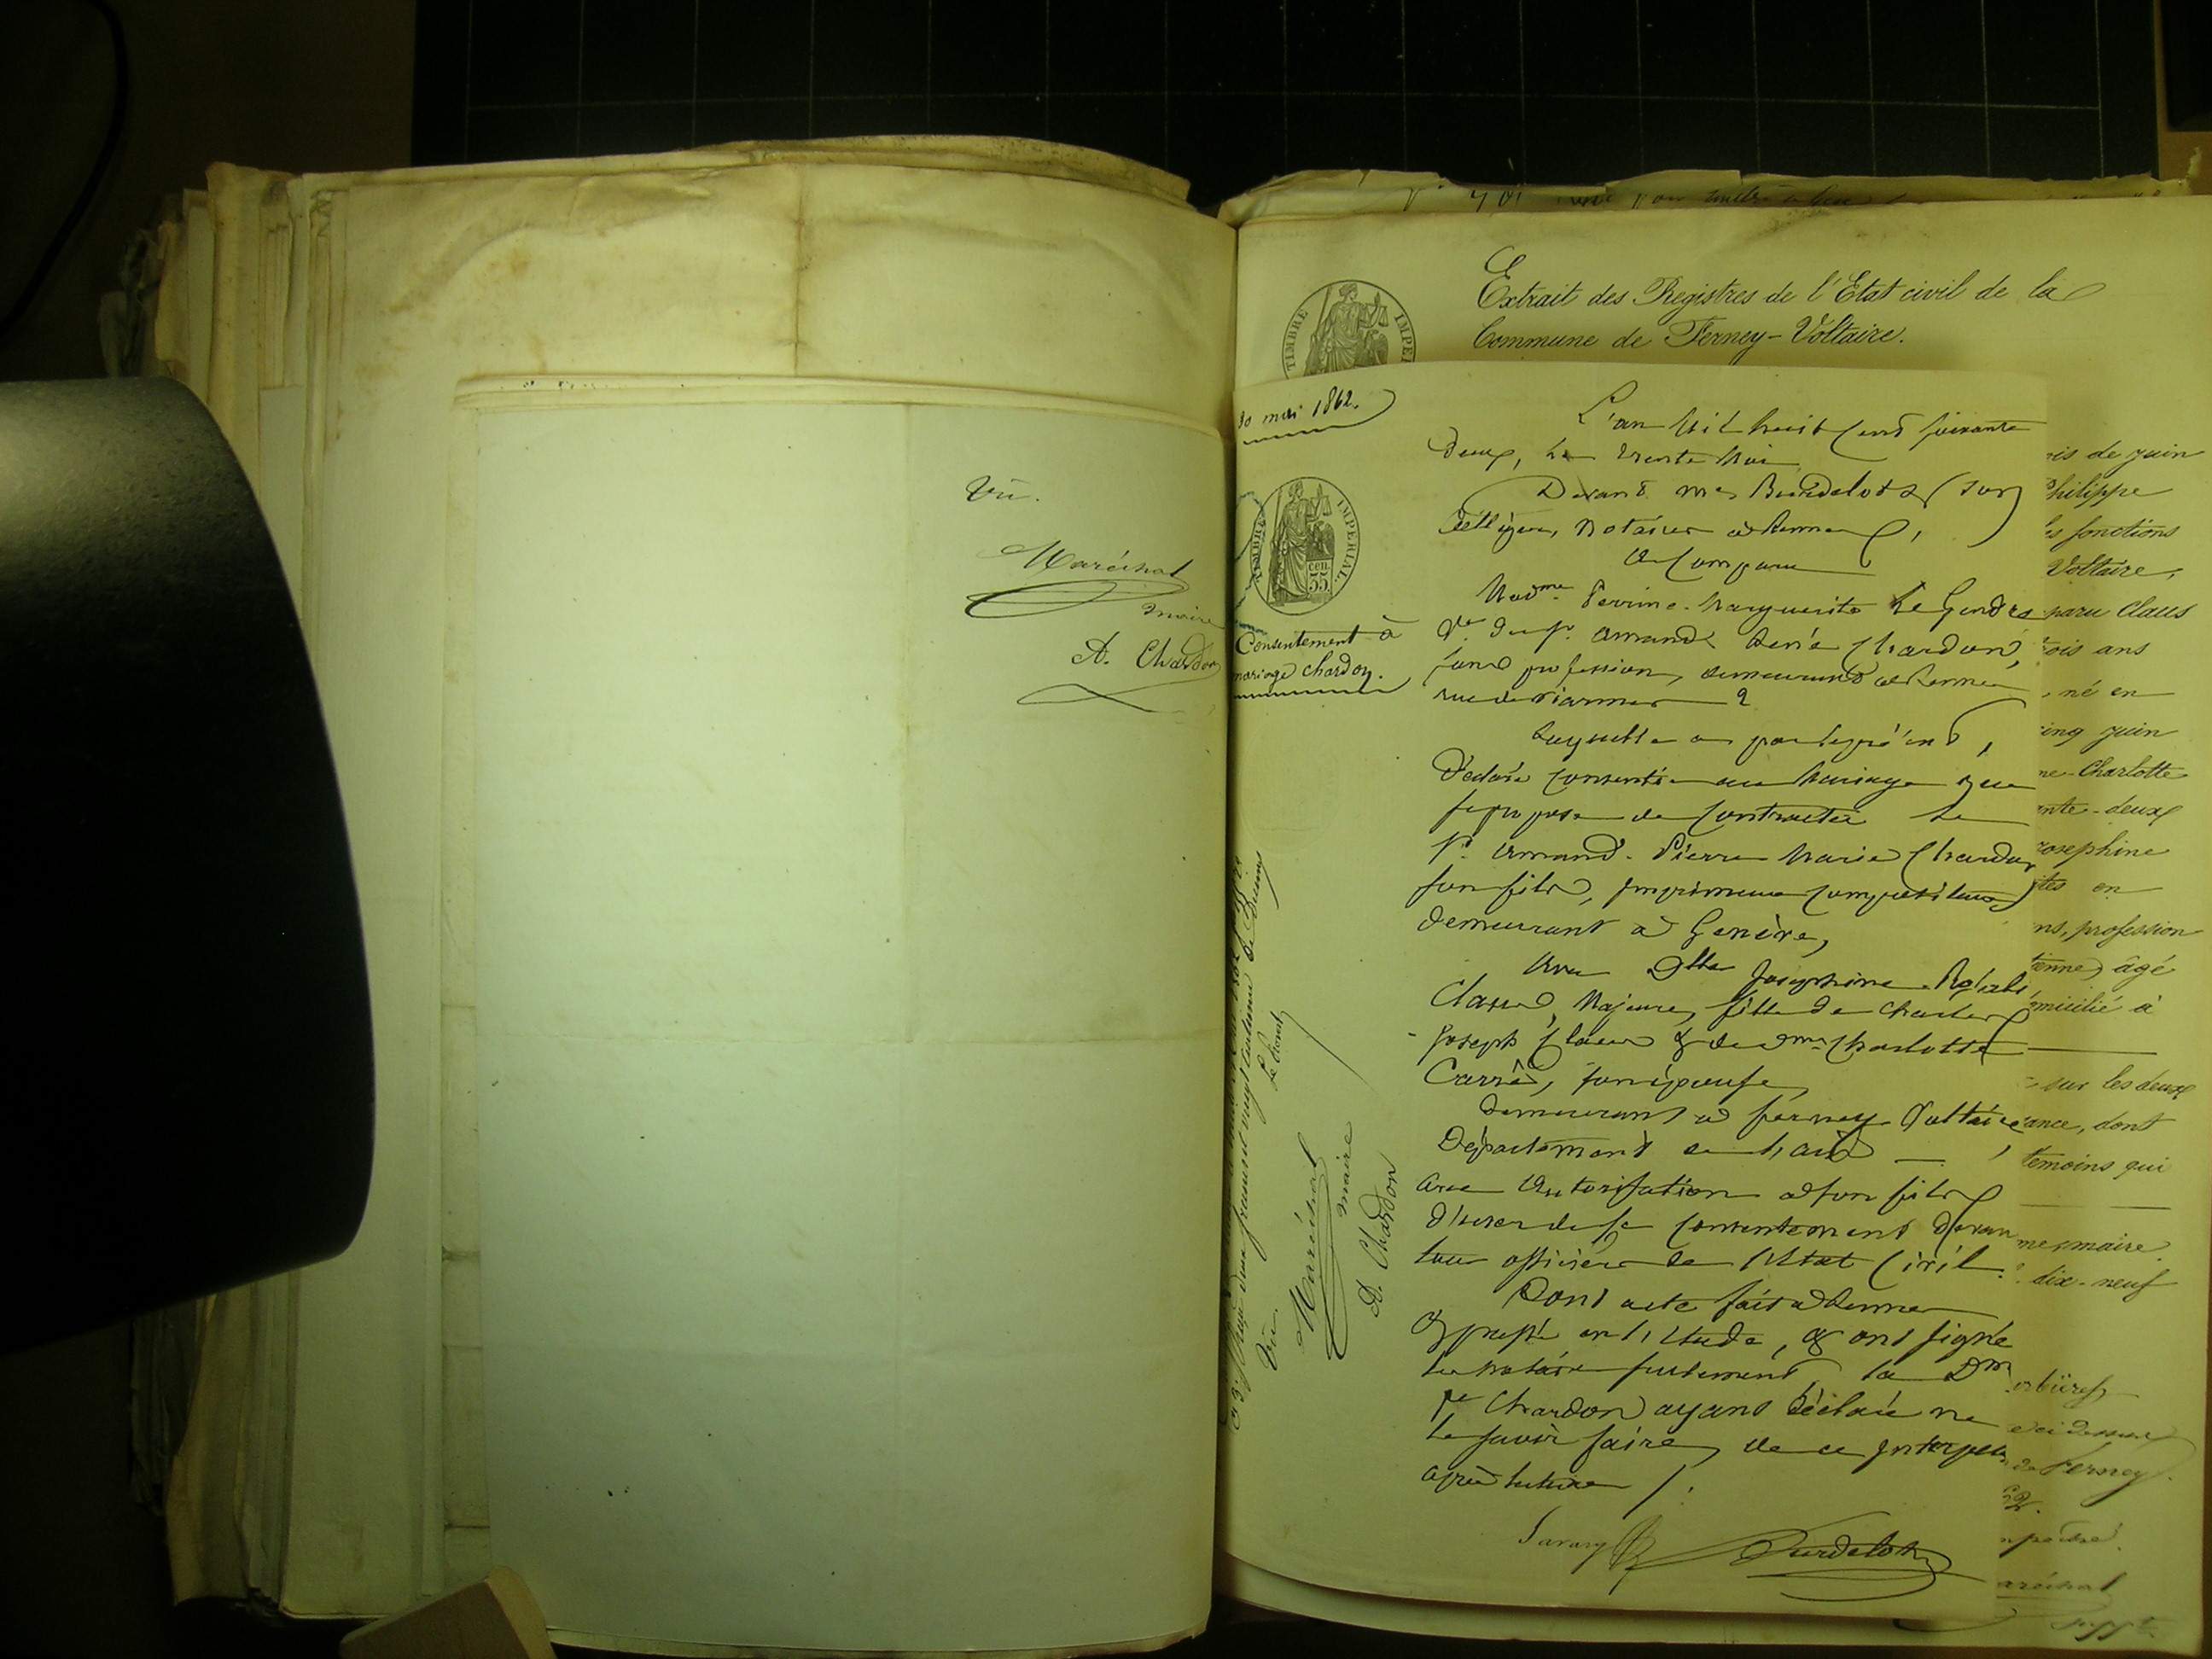 Vu.
Maréchal
maire
A. Chardon
Extrait des Registres de l'Etat civil de la
Commune de Ferney-Voltaire.
TIMBRE IMPE
30 mai 1862.
TIMBRE IMPERIAL.
55 cen
Consentement à
mariage Chardon.
L'an Mil huit cent soixante
deux, Le trente Mai
Devant Me Bourdelot & son
Collègue, Notaires à Rennes,
A Comparu
Madme Perrine-Marguerite Le Gendre
Ve du Sr Armand René Chardon,
sans profession, demeurant à Rennes
rue de
Laquelle a par les présentes,
Déclaré consentir au Mariage que
se propose de Contracter Le
Sr Armand-Pierre Marie Chardon
son fils, Imprimeur compositeur
demeurant à Genève,
Avec Dlle Josephine
Claus, Majeure, fille de Charles
Joseph Claus & de Dme Charlotte
Carré, son épouse,
demeurant à Ferney Voltaire
Département de l'ain
Avec Autorisation à son fils
d'user de ce consentement devant
tous officiers de l'Etat Civil.
Dont acte fait à Rennes
& passé en l'Etude, & ont signé
les notaires seulement, la Dme
Ve Chardon ayant déclaré ne
le savoir faire, de ce Interpellée
après lecture /.
Savary Bourdelot
Vu.
Maréchal
maire
A. Chardon
de juin
Philippe
fonctions
Voltaire,
Claus
ans
né en
juin
Charlotte
deux
Josephine
en
profession
âgé
à
sur les deux
dont
témoins qui
maire
dix-neuf
Ferney